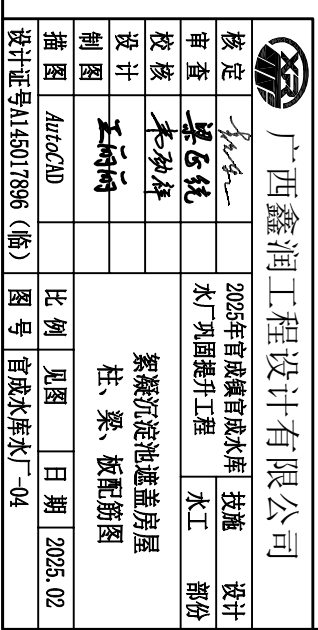 广西鑫润工程设计有限公司
核定 2025年官成镇官成水库水厂巩固提升工程 技施 设计
审查 梁正统 水工 部份
校核 韦劲程
设计 王雨雨 絮凝沉淀池遮盖房屋
制图 柱、梁、板配筋图
描图 AutoCAD 比例 见图 日期 2025.02
设计证号A145017896（临） 图号 官成水库水厂-04